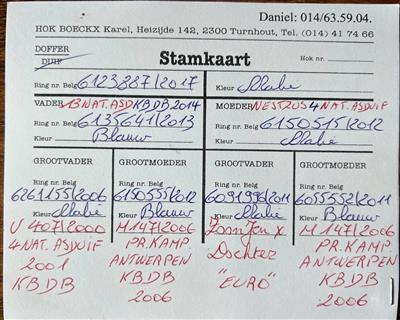 Daniel: 014/63.59.04.
HOK BOECKX Karel, Heizijde 142, 2300 Turnhout, Tel. (014) 41 74 66
DOFFER
DUIF
Stamkaart
Hok nr.
Ring nr. Belg 6123887/2017 Kleur Malie
VADER 1B NAT. ASD KBDB 2014 MOEDER NEST ZUS 4 NAT. ASDUIF
Ring nr. Belg 6135641/2013 Ring nr. Belg 6150515/2012
Kleur Blauw Kleur Malie
GROOTVADER GROOTMOEDER GROOTVADER GROOTMOEDER
Ring nr. Belg Ring nr. Belg Ring nr. Belg Ring nr. Belg
6261155/2006 6150555/2012 6091996/2011 6055552/2011
Kleur Malie Kleur Blauw Kleur Malie Kleur Blauw
V 407/2000 M 147/2006 Zoon Jen x M 147/2006
4 NAT. ASDUIF PR. KAMP. Dochter PR. KAMP.
2001 ANTWERPEN "EURO" ANTWERPEN
KBDB KBDB KBDB
2006 2006